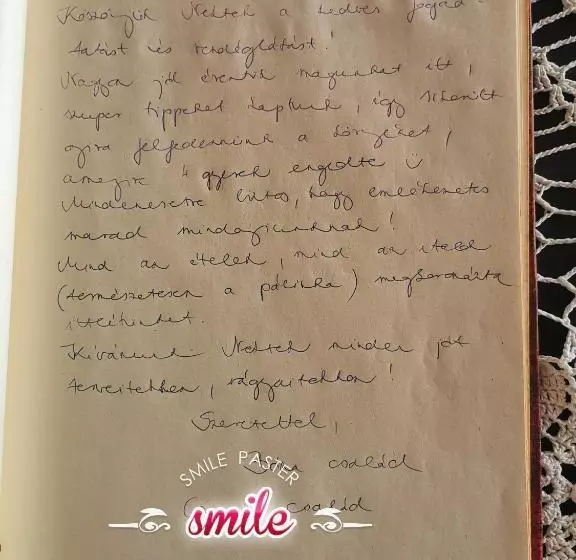 Köszönjük Nektek a kedves fogad-
tatást és vendéglátást!
Nagyon jól éreztük magunkat itt,
szuper tippeket kaptunk, így sikerült
újra felfedeznünk a környéket,
amennyire 4 gyerek engedte ü
Mindenesetre biztos, hogy emlékezetes
marad mindannyiunknak!
Mind az ételek, mind az italok
(természetesen a pálinka) megkoronázta
ittlétünket.
Kívánunk Nektek minden jót
terveitekhez, vágyaitokhoz!
Szeretettel,
család
család
SMILE PASTER
smile